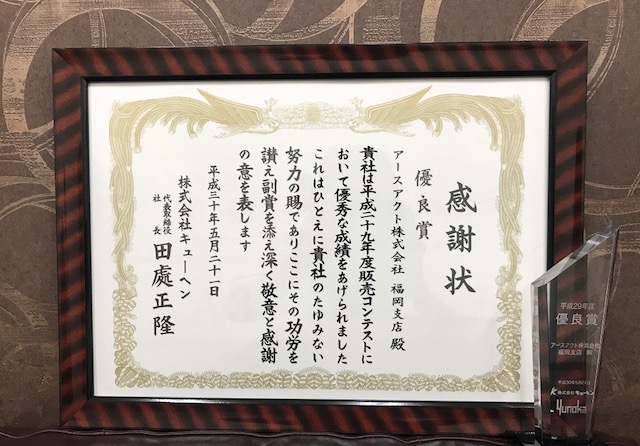 感謝状
優良賞
アースアクト株式会社 福岡支店 殿
貴社は平成二十九年度販売コンテストに
おいて優秀な成績をあげられました
これはひとえに貴社のたゆみない
努力の賜でありここにその功労を
讃え副賞を添え深く敬意と感謝
の意を表します
平成三十年五月二十一日
株式会社キューヘン
代表取締役
社長 田處正隆
平成29年度
優良賞
アースアクト株式会社
福岡支店 殿
平成30年5月21日
株式会社キューヘン
Yunoka